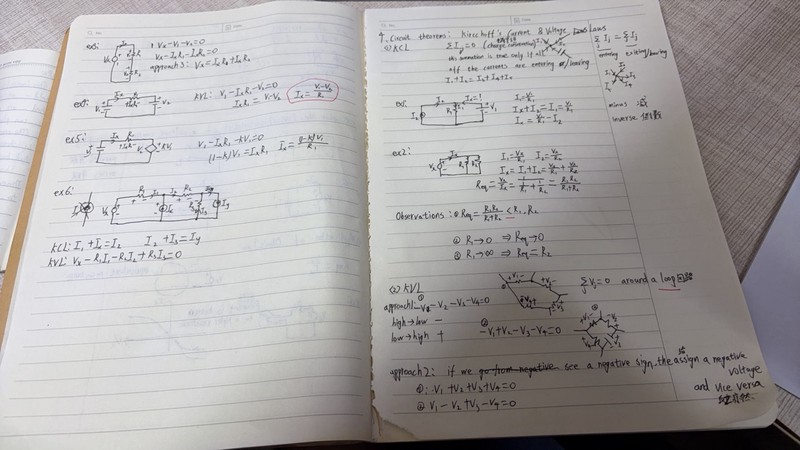 ex3:
Vx-V1-V2=0
Vx-IxR1-IxR2=0
approach2: Vx=IxR1+IxR2
ex4:
KVL: V1-IxR1-V2=0
IxR1=V1-V2
Ix=(V1-V2)/R1
ex5:
V1-IxR1-kV1=0
(1-k)V1=IxR1 Ix=(1-k)V1/R1
ex6:
KCL: I1+Ix=I2 I2+I3=Iy
KVL: Vx-R1I1-R2I2+R3I3=0
4. Circuit theorems: Kirchhoff's Current & Voltage Laws
(1) KCL
Σ Ij=0 (charge conservation)
this summation is true only if all
off the currents are entering or/leaving
I1+I2+I3+I4=0
Σ Ij = Σ Ij
entering exiting/leaving
minus 减
inverse 倒数
ex1:
Ix=?
I1=V1/R1
Ix+I2=I1=V1/R1
Ix=V1/R1-I2
ex2:
I1=Vx/R1 I2=Vx/R2
Ix=I1+I2=Vx/R1+Vx/R2
Req=Vx/Ix=1/(1/R1+1/R2)=R1R2/(R1+R2)
Observations: ① Req=R1R2/(R1+R2)<R1,R2
② R1→0 ⇒Req→0
③ R1→∞ ⇒Req=R2
(2) KVL
Σ Vj=0 around a loop 回路
approach1: ① -V1-V2-V3-V4=0
high→low -
low→high +
② -V1+V2-V3-V4=0
approach2: if we go from negative see a negative sign, the assign a negative
voltage
and vice versa
① V1+V2+V3+V4=0
② V1-V2+V3-V4=0